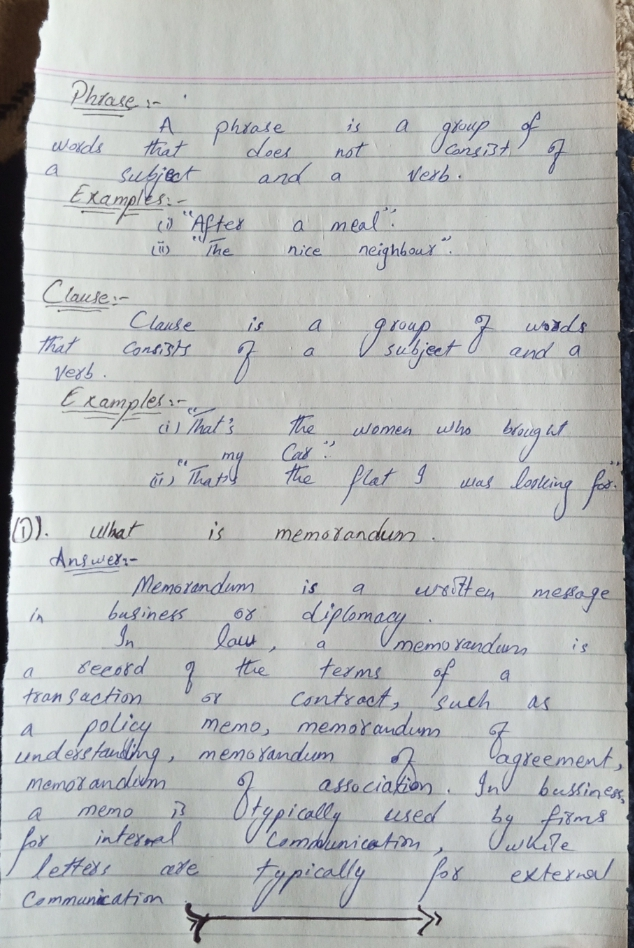 Phrase :-
A phrase is a group of
words that does not consist of
a subject and a verb.
Examples:-
(i) "After a meal".
(ii) "The nice neighbour".
Clause:-
Clause is a group of words
that consists of a subject and a
verb.
Examples:-
(i) "That's the women who brought
my Car".
(ii) "That's the flat I was looking for."
(1). What is memorandum.
Answer:-
Memorandum is a written message
in business or diplomacy.
In law, a memorandum is
a record of the terms of a
transaction or contract, such as
a policy memo, memorandum of
understanding, memorandum of agreement,
memorandum of association. In bussiness,
a memo is typically used by firms
for internal Communication, while
letters are typically for external
Communication